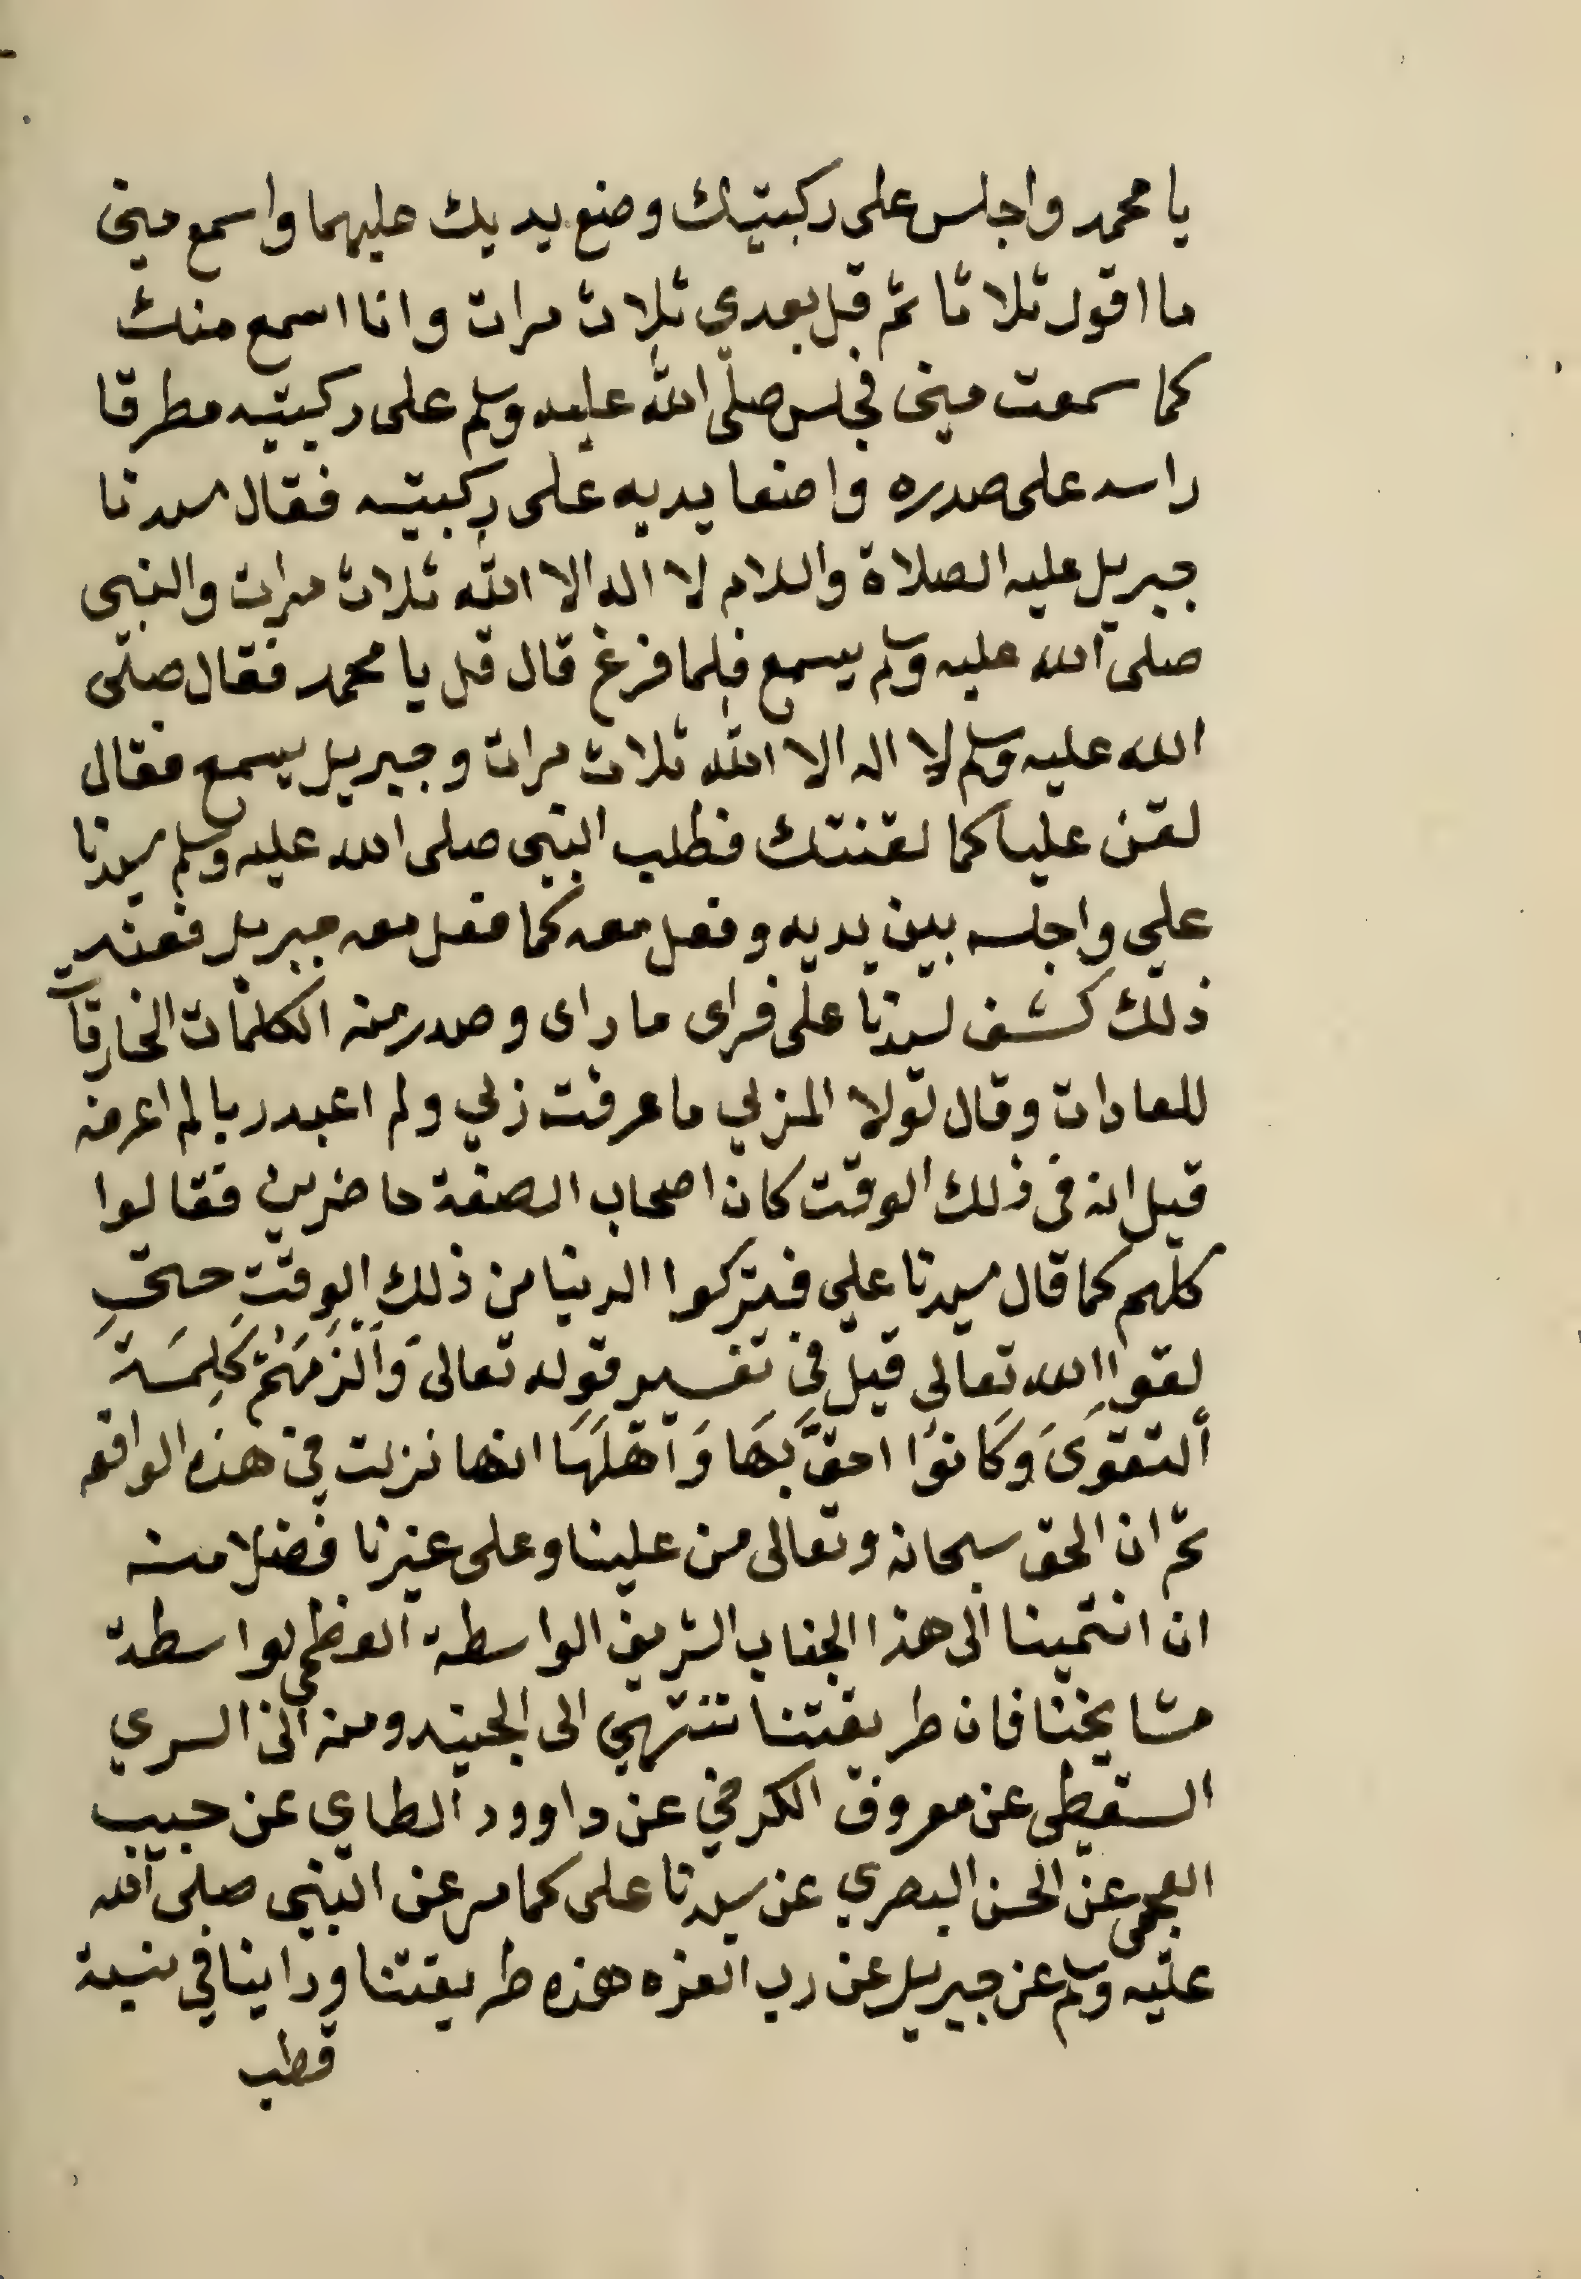 يا محمد واجلس على ركبتيك وضع يديك عليهما واسمع مني
ما اقول ثلاثا ثم قل بعدي ثلاث مرات وانا اسمع منك
كما سمعت مني فجلس صلى الله عليه وسلم على ركبتيه مطرقا
راسه على صدره واضعا يديه على ركبتيه فقال سيدنا
جبريل عليه الصلاة والسلام لا اله الا الله ثلاث مرات والنبي
صلى الله عليه وسلم يسمع فلما فرغ قال قل يا محمد فقال صلى
الله عليه وسلم لا اله الا الله ثلاث مرات وجبريل يسمع فقال
لقن عليا كما لقنتك فطلب النبي صلى الله عليه وسلم سيدنا
علي واجلسه بين يديه وفعل معه كما فعل معه جبريل فعند
ذلك كشف لسيدنا على فراى ما راى وصدر منه الكلمات الخارقات
للعادات وقال لولا المربي ما عرفت ربي ولم اعبد ربا لم اعرفه
قيل انه في ذلك الوقت كان اصحاب الصفة حاضرين فقالوا
كلهم كما قال سيدنا علي فتركوا الدنيا من ذلك الوقت حتى
لقوا الله تعالى قيل في تفسير قوله تعالى وَاَلْزَمَهُمْ كَلِمَةَ
اَلتقوَىَ وَكَانوُا احقَّ بِهَا وَاَهْلَهَا انها نزلت في هذه الواقعه
ثم ان الحق سبحانه وتعالى من علينا وعلى غيرنا فضلا منه
ان انتمينا الى هذا الجناب الشريف الواسطة العظمى بواسطة
مشايخنا فان طريقتنا تنتهي الى الجنيد ومنه الى السري
السقطى عن معروف الكرخي عن داوود الطاي عن حبيب
العجمى عن الحسن البصري عن سيدنا على كما مر عن النبي صلى الله
عليه وسلم عن جبريل عن رب العزه هذه طريقتنا وراينا في نسبة
قطب